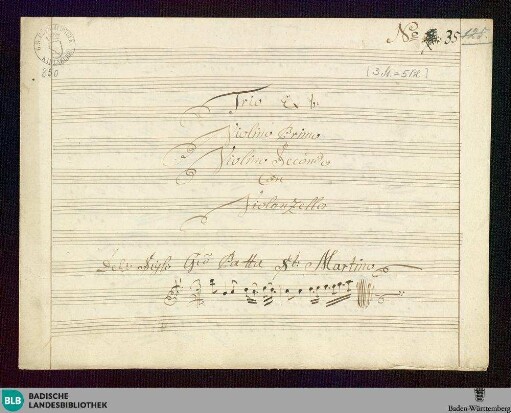 No. 35 128.
250
(3 St. = 5 Bl.)
Trio Ex b
Violino Primo
Violino Secondo
Con
Violonzello
Dell Sigle Gio Batta St: Martino
BLB BADISCHE
LANDESBIBLIOTHEK
Baden-Württemberg